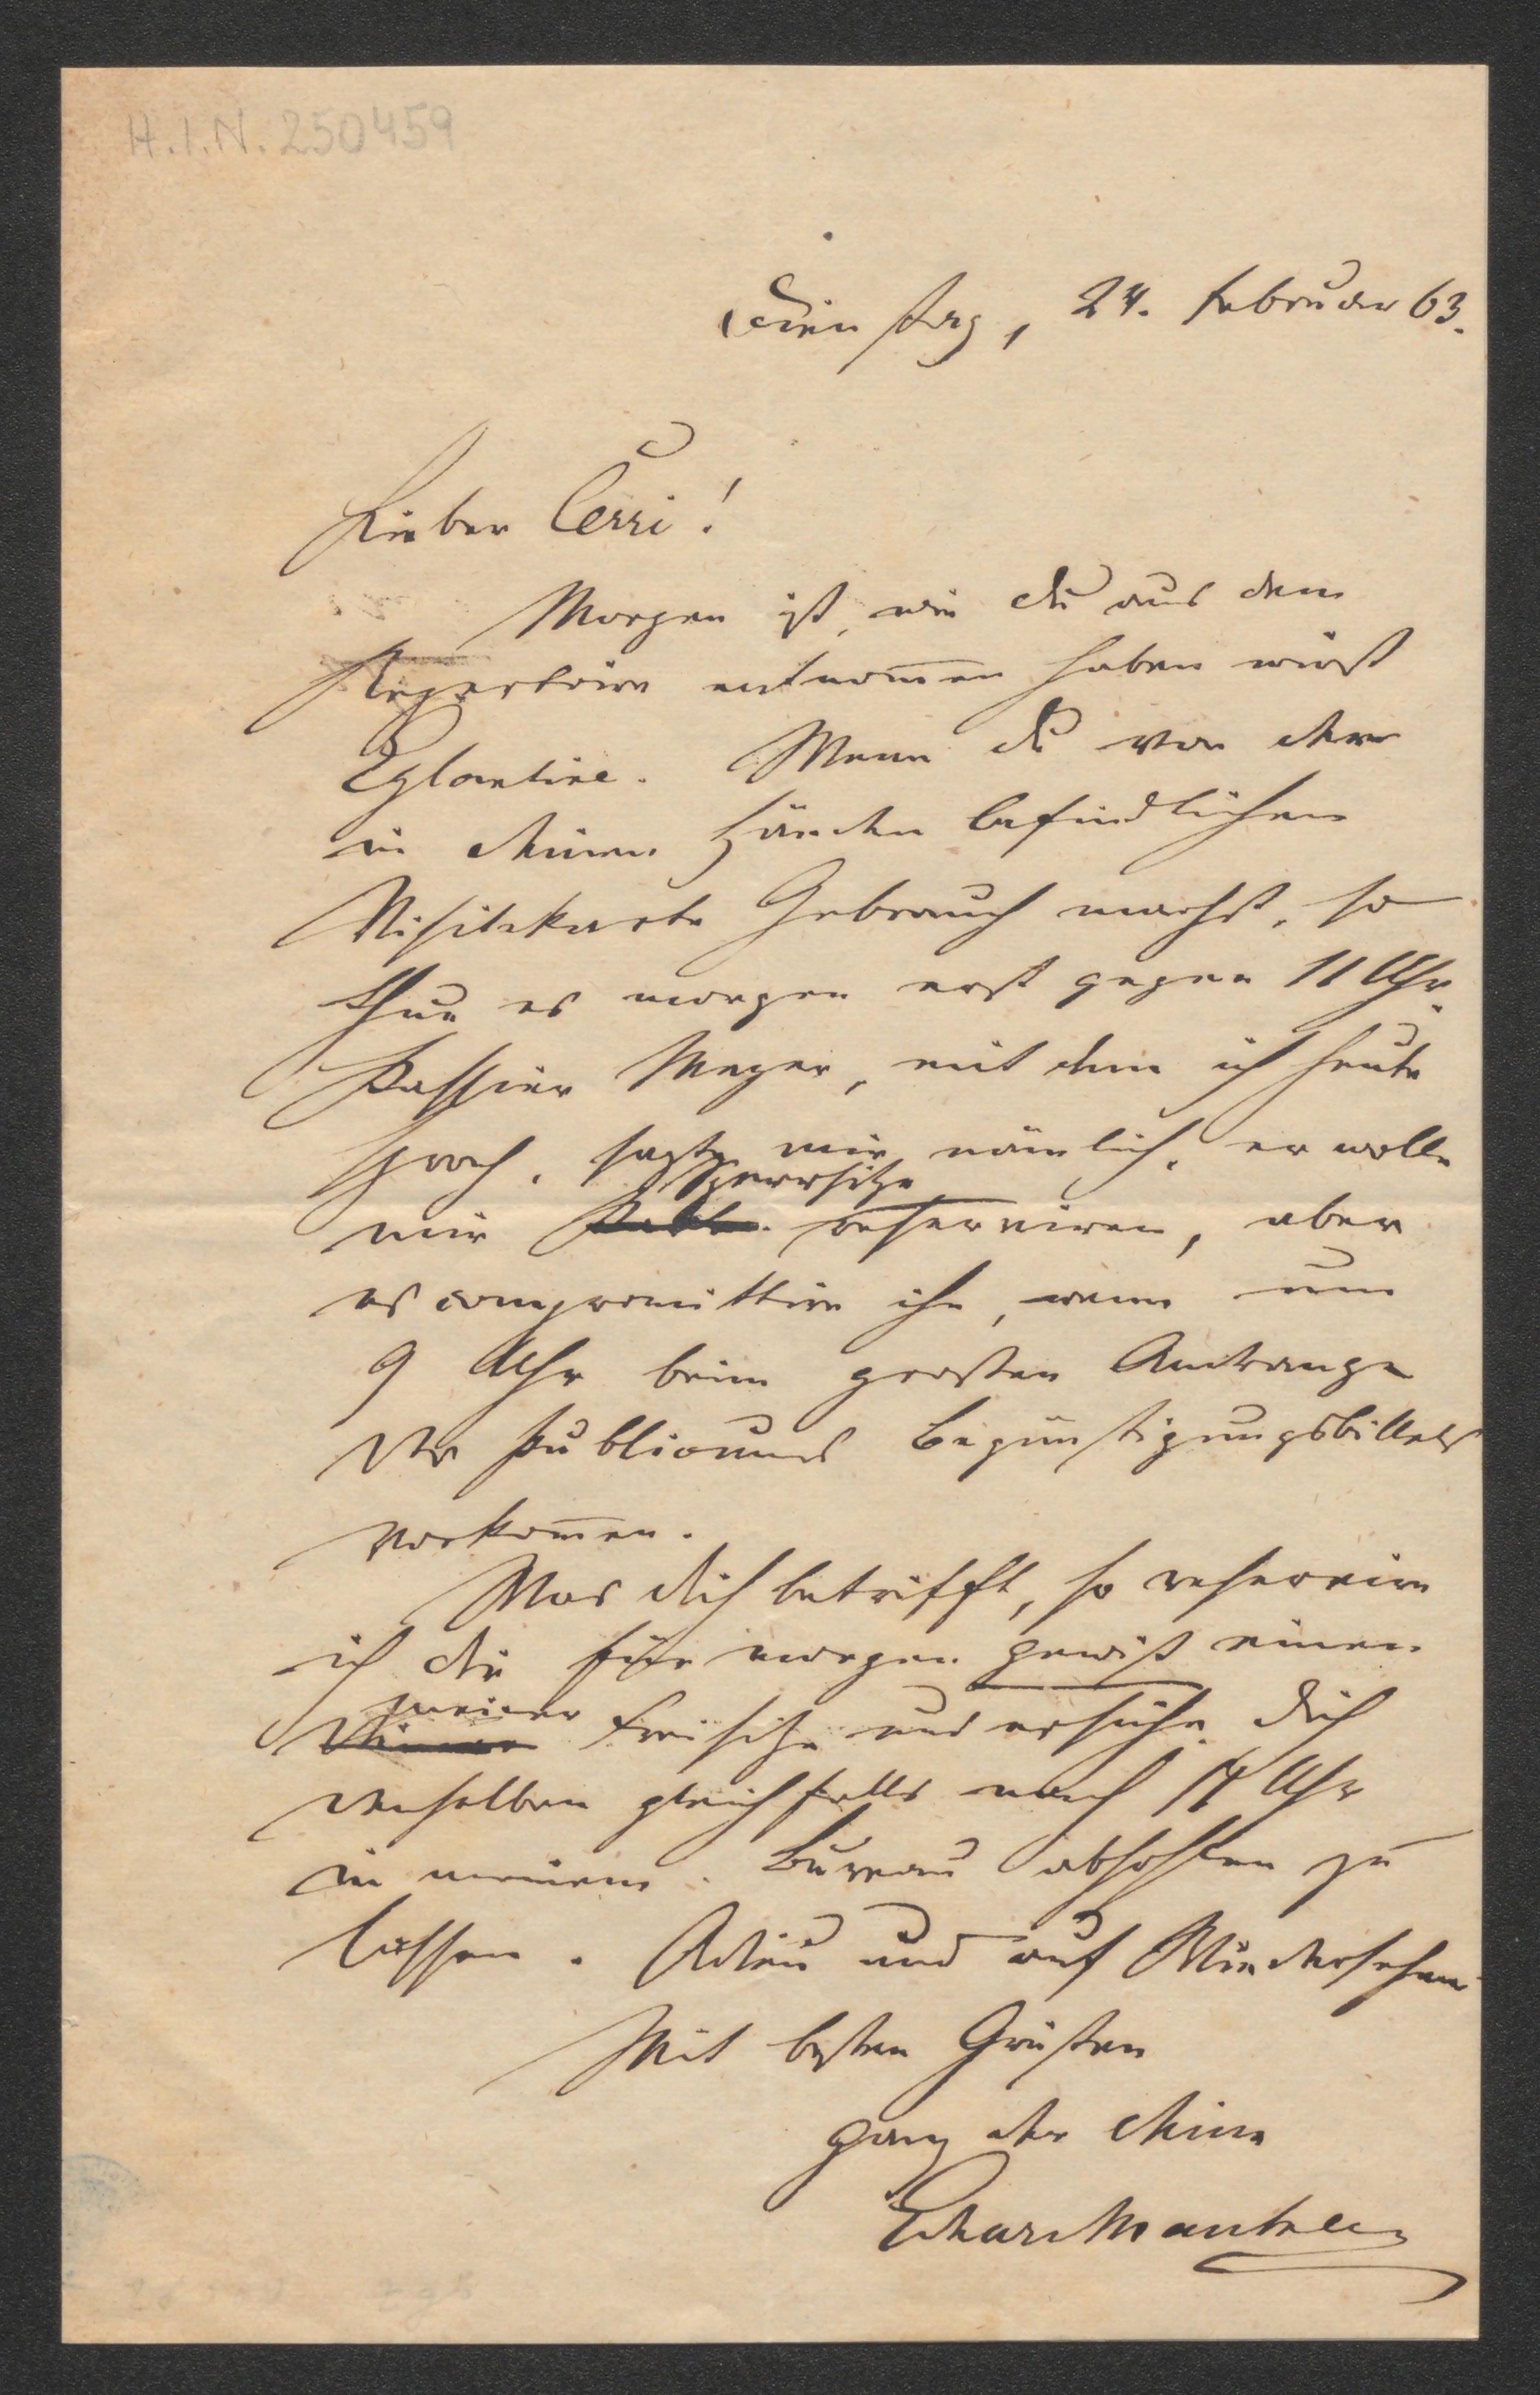 H.I.N. 250459
Dienstag, 24. Februar 63.
Lieber Cerri!
Morgen ist, wie du aus dem
Repertoire entnom̄en haben wirst
Eglantine. Wenn du von der
in deinen Händen befindlichen
Visitekarte Gebrauch machst, so
thue es morgen erst gegen 11 Uhr.
Kassier Mayer, mit dem ich heute
sprach, sagte mir nämlich, er wolle
Sperrsitze
mir reserviren, aber
es compromittire ihn, wenn um
9 Uhr beim großen Andrange
des Publicums Begünstigungsbillets
vorkom̄en.
Was dich betrifft, so reservire
ich dir für morgen gewiß einen
meiner
Freisitze und ersuche dich
denselben gleichfalls nach 11 Uhr
in meinem Bureau abholen zu
lassen. Adieu und auf Wiedersehen.
Mit besten Grüßen
ganz der deine
Eduard Mautner